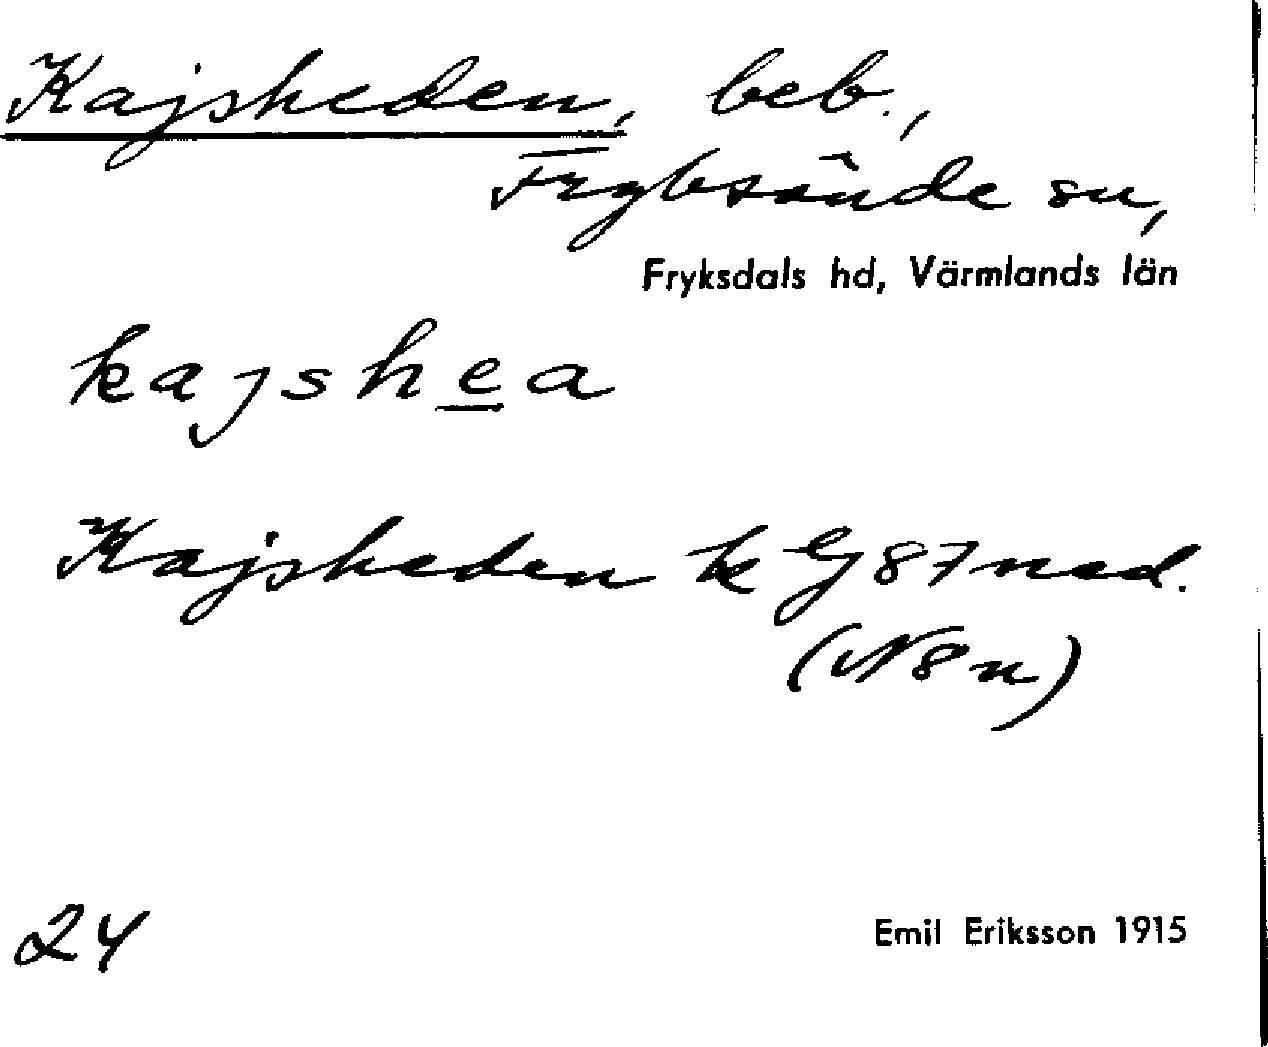 Kajsheden, beb.,
Fryksände sn,
Fryksdals hd, Värmlands län
kajshea
Kajsheden k G 87 ned.
(N8n)
24
Emil Eriksson 1915